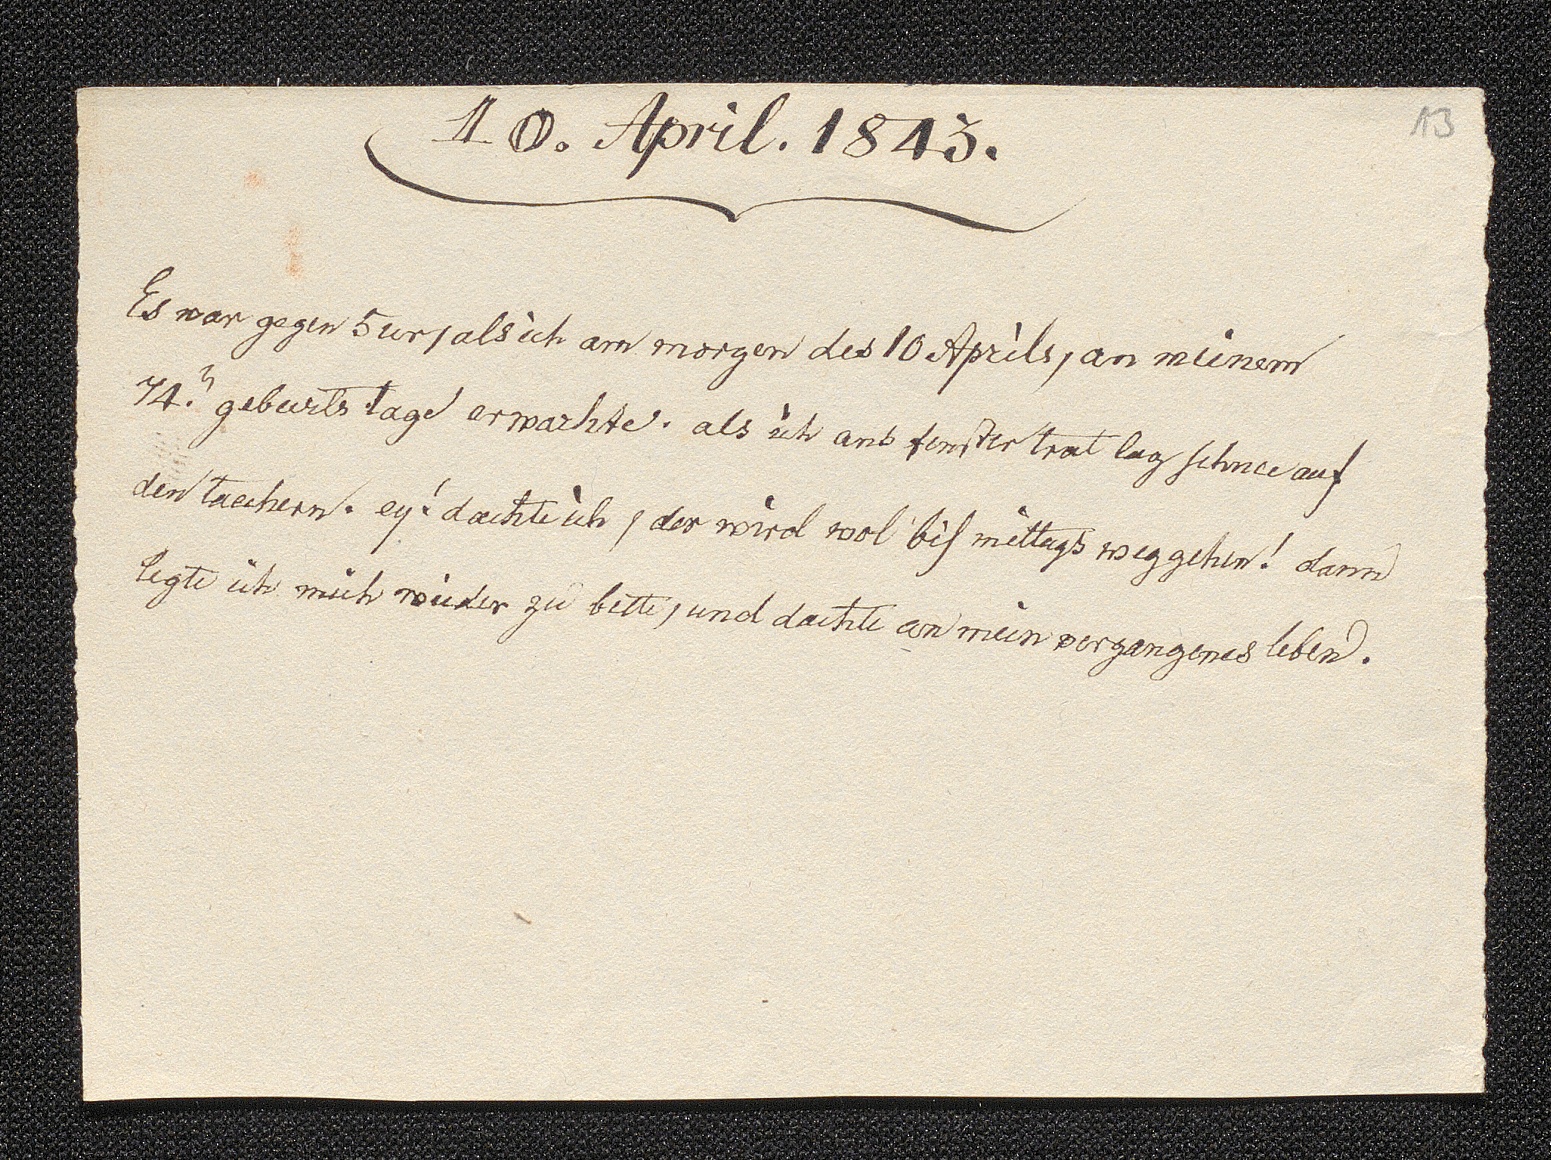 13
10. April. 1843.
Es war gegen 5 ur, als ich am morgen des 10 Aprils, an meinem
74.n geburts tage erwachte. als ich ans fenster trat lag schnee auf
den taechern. ey! dachte ich, der wird wol bis mittags weggehen! dann
legte ich mich wieder zu bette, und dachte an mein vergangenes leben.